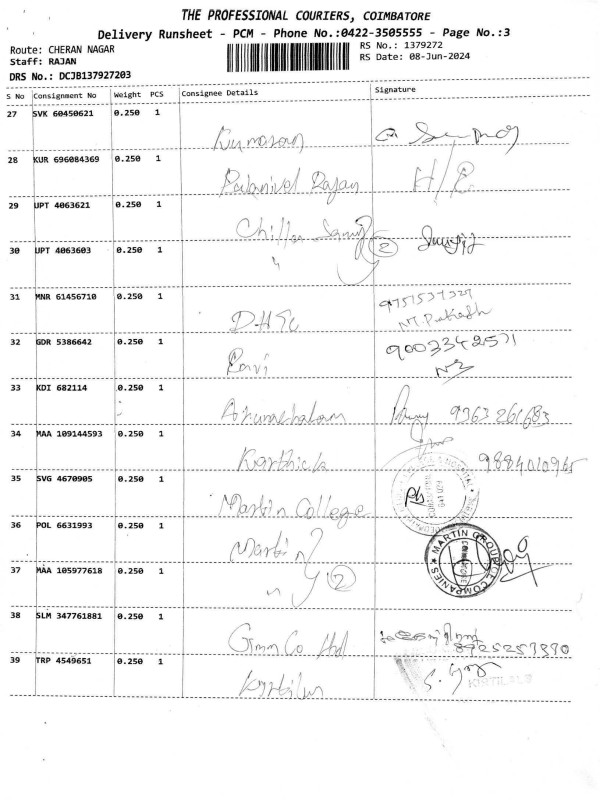 THE PROFESSIONAL COURIERS, COIMBATORE
Delivery Runsheet - PCM - Phone No.:0422-3505555 - Page No.:3
Route: CHERAN NAGAR
RS No.: 1379272
Staff: RAJAN
RS Date: 08-Jun-2024
DRS No.: DCJB137927203
S No Consignment No Weight PCS Consignee Details Signature
27 SVK 60450621 0.250 1
Kumaran
28 KUR 696084369 0.250 1
Palanivel Rajan
29 UPT 4063621 0.250 1
2
30 UPT 4063603 0.250 1
"
31 MNR 61456710 0.250 1
32 GDR 5386642 0.250 1
9003342571
Ravi
33 KDI 682114 0.250 1
Arunachalam 9363261683
34 MAA 109144593 0.250 1
Karthick 9884010965
35 SVG 4670905 0.250 1
Martin College
36 POL 6631993 0.250 1
Martin
MARTIN GROUP COMPANIES
37 MAA 105977618 0.250 1
" 2
38 SLM 347761881 0.250 1
8925253890
39 TRP 4549651 0.250 1
KIRTILALS